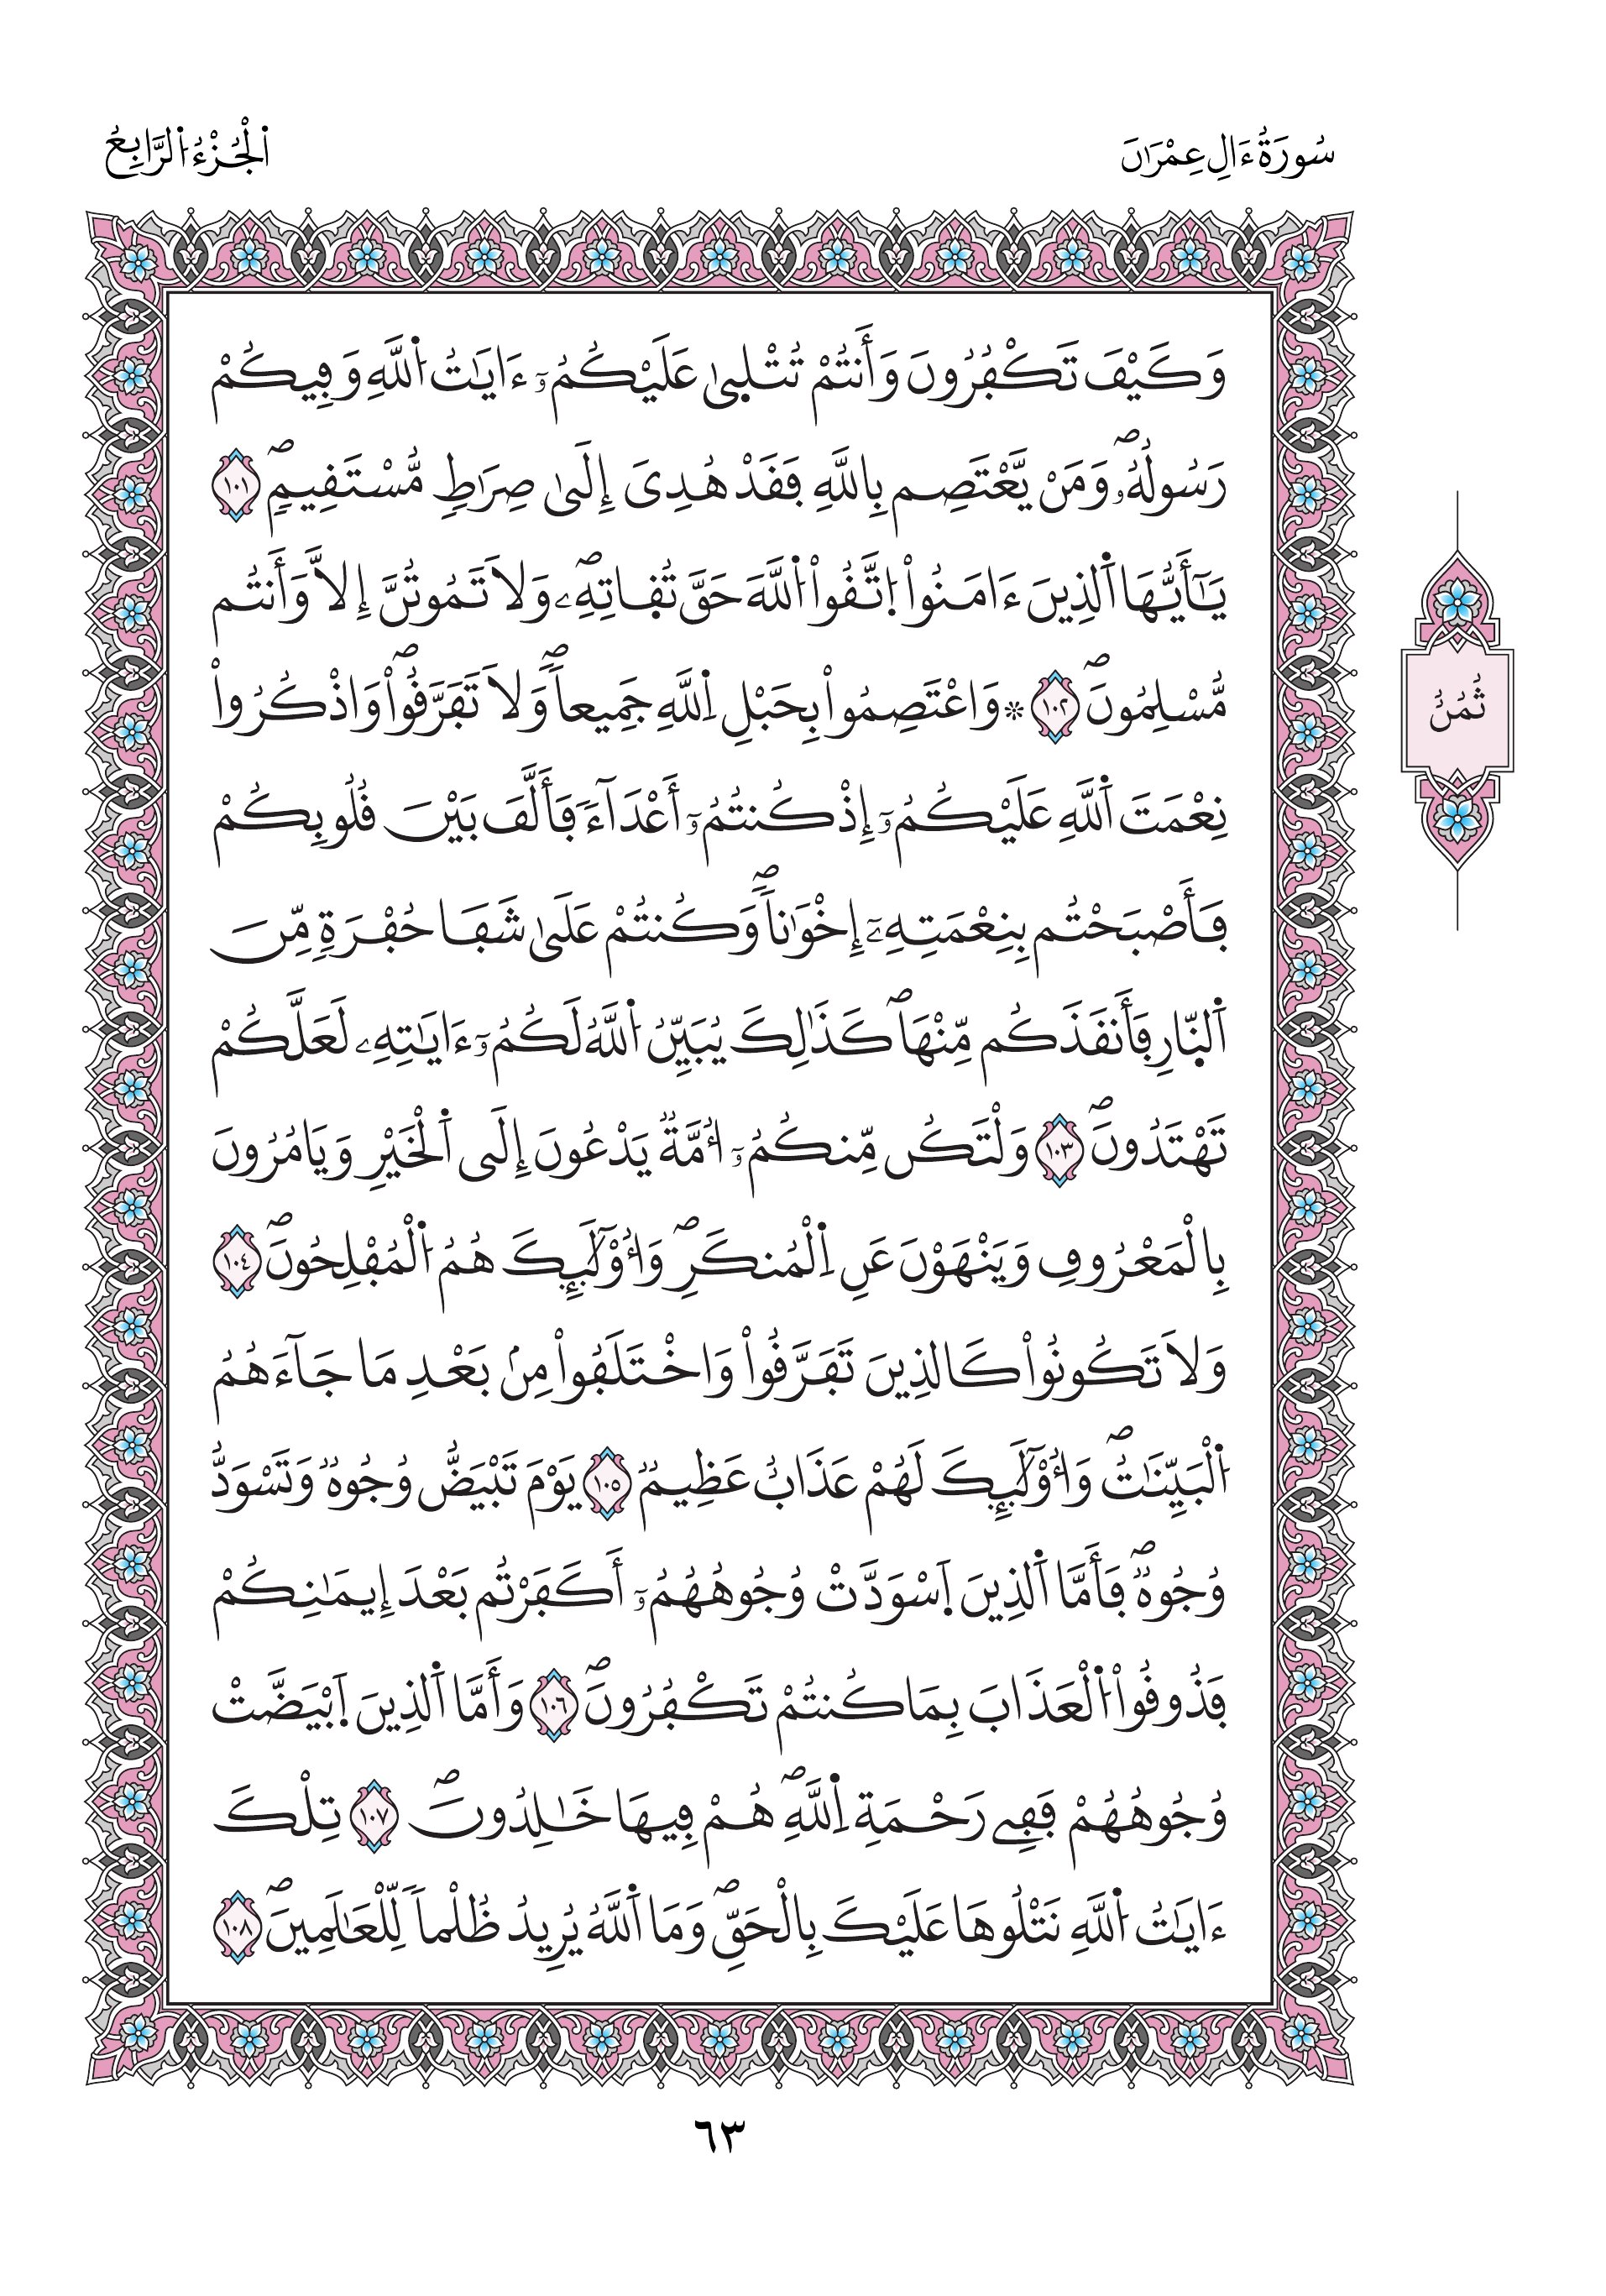 سُورَةُ ءَالِ عِمْرَٰنَ
اَ۬لْجُزْءُ اُ۬لرَّابِعُ
وَكَيْفَ تَكْفُرُونَ وَأَنتُمْ تُتْل۪ىٰ عَلَيْكُمُۥٓ ءَايَٰتُ اُ۬للَّهِ وَفِيكُمْ
رَسُولُهُۥۖ وَمَنْ يَّعْتَصِم بِاللَّهِ فَقَدْ هُدِىَ إِلَىٰ صِرَٰطٖ مُّسْتَقِيمٖۖ ١٠١
يَٰٓأَيُّهَا اَ۬لذِينَ ءَامَنُواْ اُ۪تَّقُواْ اُ۬للَّهَ حَقَّ تُق۪اتِهِۦۖ وَلَا تَمُوتُنَّ إِلَّا وَأَنتُم
مُّسْلِمُونَۖ ١٠٢ ۞ وَاعْتَصِمُواْ بِحَبْلِ اِ۬للَّهِ جَمِيعاٗۖ وَلَا تَفَرَّقُواْۖ وَاذْكُرُواْ
نِعْمَتَ اَ۬للَّهِ عَلَيْكُمُۥٓ إِذْ كُنتُمُۥٓ أَعْدَآءٗ فَأَلَّفَ بَيْنَ قُلُوبِكُمْ
فَأَصْبَحْتُم بِنِعْمَتِهِۦٓ إِخْوَٰناٗۖ وَكُنتُمْ عَلَىٰ شَفَا حُفْرَةٖ مِّنَ
اَ۬لنّ۪ارِ فَأَنقَذَكُم مِّنْهَاۖ كَذَٰلِكَ يُبَيِّنُ اُ۬للَّهُ لَكُمُۥٓ ءَايَٰتِهِۦ لَعَلَّكُمْ
تَهْتَدُونَۖ ١٠٣ وَلْتَكُن مِّنكُمُۥٓ أُمَّةٞ يَدْعُونَ إِلَى اَ۬لْخَيْرِ وَيَامُرُونَ
بِالْمَعْرُوفِ وَيَنْهَوْنَ عَنِ اِ۬لْمُنكَرِۖ وَأُوْلَٰٓئِكَ هُمُ اُ۬لْمُفْلِحُونَۖ ١٠٤
وَلَا تَكُونُواْ كَالذِينَ تَفَرَّقُواْ وَاخْتَلَفُواْ مِنۢ بَعْدِ مَا جَآءَهُمُ
اُ۬لْبَيِّنَٰتُۖ وَأُوْلَٰٓئِكَ لَهُمْ عَذَابٌ عَظِيمٞ ١٠٥ يَوْمَ تَبْيَضُّ وُجُوهٞ وَتَسْوَدُّ
وُجُوهٞۖ فَأَمَّا اَ۬لذِينَ اَ۪سْوَدَّتْ وُجُوهُهُمُۥٓ أَكَفَرْتُم بَعْدَ إِيمَٰنِكُمْ
فَذُوقُواْ اُ۬لْعَذَابَ بِمَا كُنتُمْ تَكْفُرُونَۖ ١٠٦ وَأَمَّا اَ۬لذِينَ اَ۪بْيَضَّتْ
وُجُوهُهُمْ فَفِے رَحْمَةِ اِ۬للَّهِۖ هُمْ فِيهَا خَٰلِدُونَۖ ١٠٧ تِلْكَ
ءَايَٰتُ اُ۬للَّهِ نَتْلُوهَا عَلَيْكَ بِالْحَقِّۖ وَمَا اَ۬للَّهُ يُرِيدُ ظُلْماٗ لِّلْعَٰلَمِينَۖ ١٠٨
ثُمُنٌ
٦٣